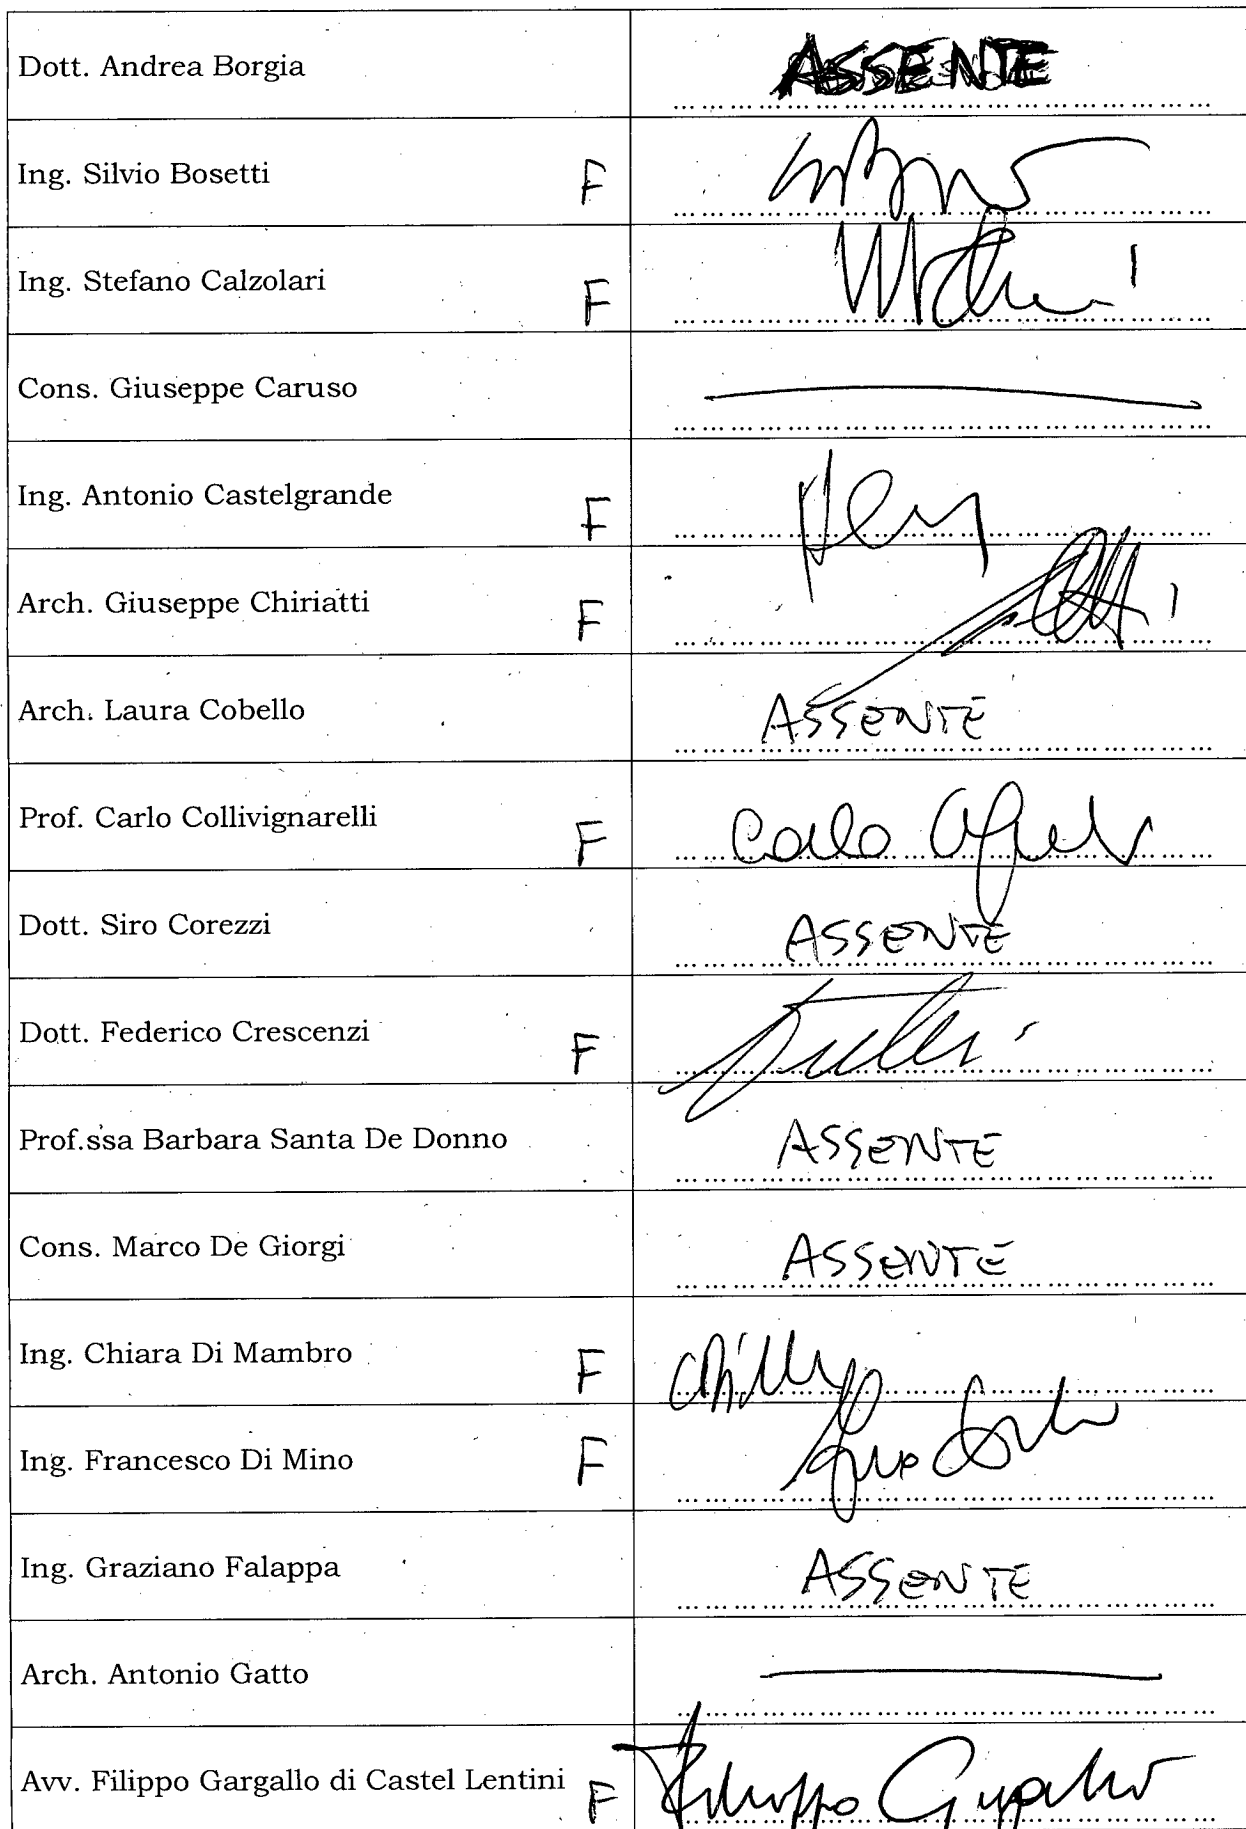 Dott. Andrea Borgia ASSENTE
Ing. Silvio Bosetti F
Ing. Stefano Calzolari F
Cons. Giuseppe Caruso
Ing. Antonio Castelgrande F
Arch. Giuseppe Chiriatti F
Arch. Laura Cobello ASSENTE
Prof. Carlo Collivignarelli F Carlo
Dott. Siro Corezzi ASSENTE
Dott. Federico Crescenzi F
Prof.ssa Barbara Santa De Donno ASSENTE
Cons. Marco De Giorgi ASSENTE
Ing. Chiara Di Mambro F
Ing. Francesco Di Mino F
Ing. Graziano Falappa ASSENTE
Arch. Antonio Gatto
Avv. Filippo Gargallo di Castel Lentini F Filippo Gargallo